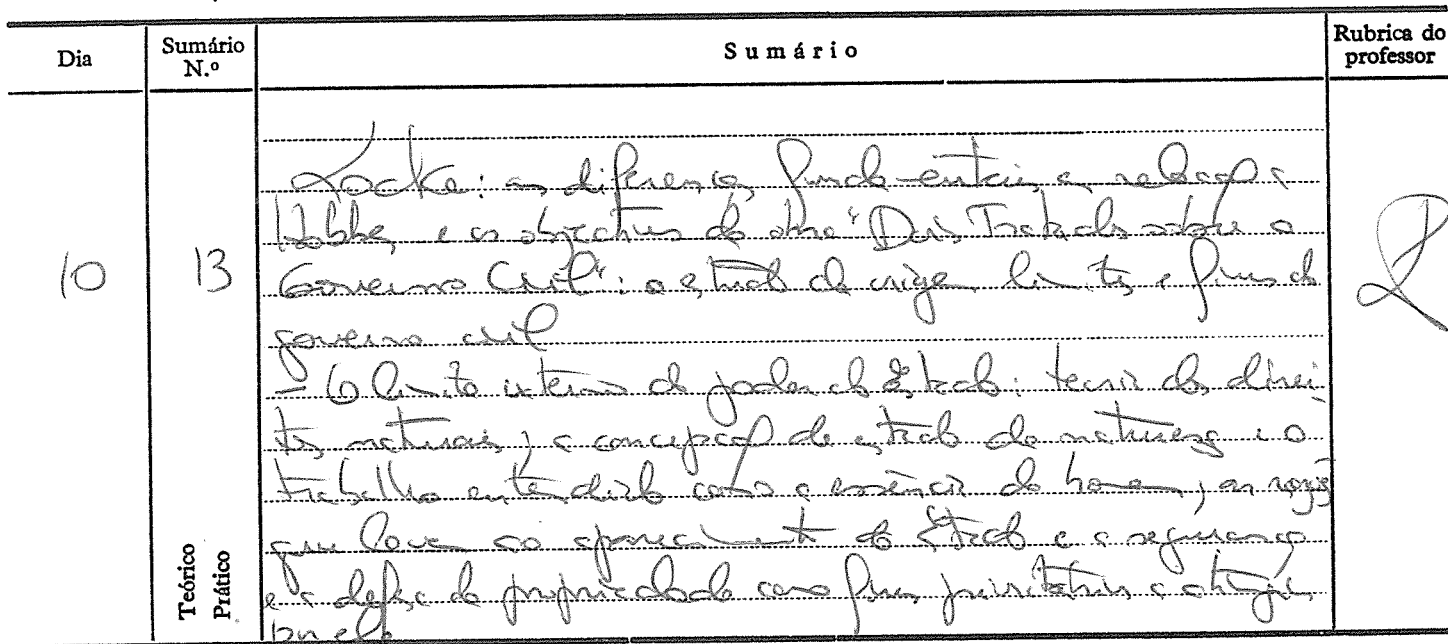 Dia
Sumário N.º
Sumário
Rubrica do professor
Locke: as diferenças fundamentais em relação a
Hobbes e os objectivos da obra "Dois Tratados sobre o
Governo Civil": o estudo da origem limites e fins do
governo civil
10
13
- O limite interno do poder do Estado: teoria dos direi-
tos naturais; a concepção de estado de natureza e o
trabalho entendido como a essência do homem; as razões
que levam ao aparecimento do Estado e a segurança
e a defesa da propriedade como fins prioritários a atingir
por ele
Teórico
Prático